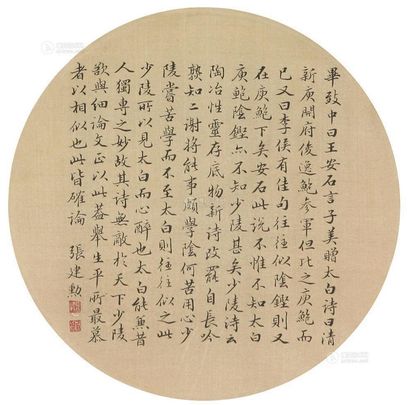 畢致中曰王安石言子美贈太白詩曰清
新庾開府俊逸鮑參軍但比之庾鮑而
已又曰李侯有佳句往往似陰鏗則又
在庾鮑下矣安石此說不惟不知太白
庾鮑陰鏗亦不知少陵甚矣少陵詩云
陶冶性靈存底物新詩改罷自長吟
孰知二謝將能事頗學陰何苦用心少
陵嘗苦學而不至太白則往往似之此
少陵所以見太白而心醉也太白能兼昔
人獨專之妙故其詩無敵於天下少陵
欲與細論文正以此蓋舉生平所最慕
者以相似也此皆確論 張建勲